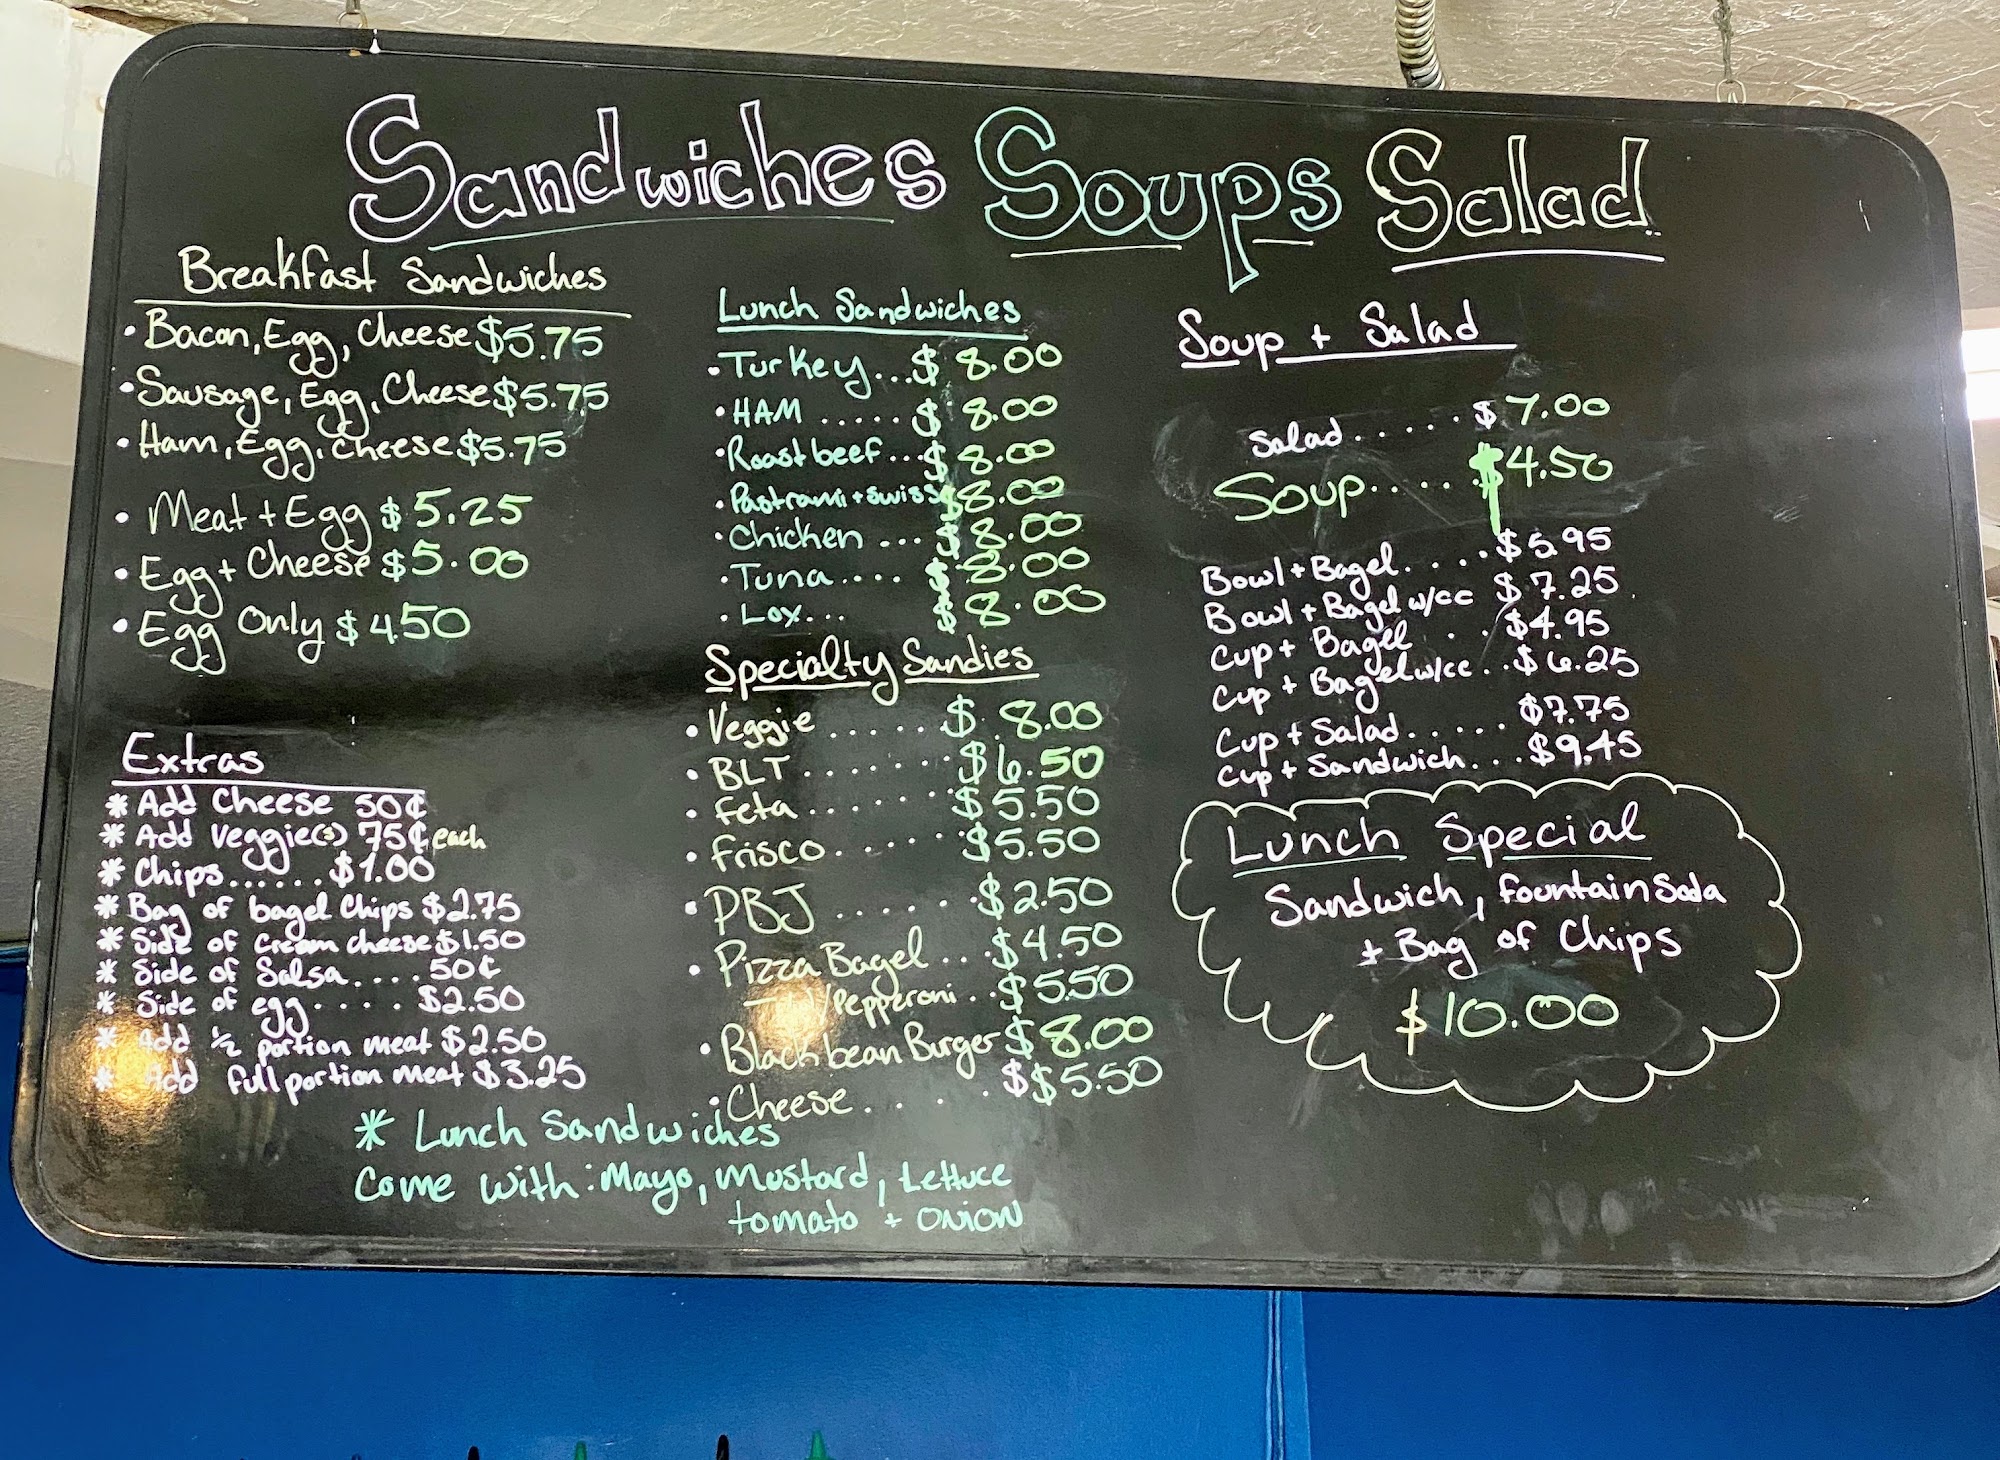 Sandwiches Soups Salad
Breakfast Sandwiches
• Bacon, Egg, Cheese $5.75
• Sausage, Egg, Cheese $5.75
• Ham, Egg, Cheese $5.75
• Meat + Egg $5.25
• Egg + Cheese $5.00
• Egg Only $4.50
Extras
* Add Cheese 50¢
* Add Veggie(s) 75¢ each
* Chips...... $1.00
* Bag of bagel Chips $2.75
* Side of cream cheese $1.50
* Side of Salsa.... 50¢
* Side of egg.... $2.50
* Add 1/2 portion meat $2.50
* Add full portion meat $3.25
Lunch Sandwiches
• Turkey...$ 8.00
• HAM .....$ 8.00
• Roast beef...$ 8.00
• Pastrami + swiss $8.00
• Chicken ...$ 8.00
• Tuna....$ 8.00
• Lox...$ 8.00
Specialty Sandies
• Veggie .....$ 8.00
• BLT.......$6.50
• feta.......$5.50
• frisco.....$5.50
• PBJ ......$2.50
• Pizza Bagel...$4.50
w/Pepperoni..$5.50
• Black bean Burger $8.00
• Cheese.....$$5.50
* Lunch Sandwiches
Come with: Mayo, Mustard, Lettuce
tomato + ONION
Soup + Salad
Salad.....$ 7.00
Soup.....$4.50
Bowl + Bagel....$5.95
Bowl + Bagel w/cc $7.25
Cup + Bagel...$4.95
Cup + Bagel w/cc..$6.25
Cup + Salad.....$7.75
Cup + Sandwich...$9.45
Lunch Special
Sandwich, fountain Soda
+ Bag of Chips
$10.00